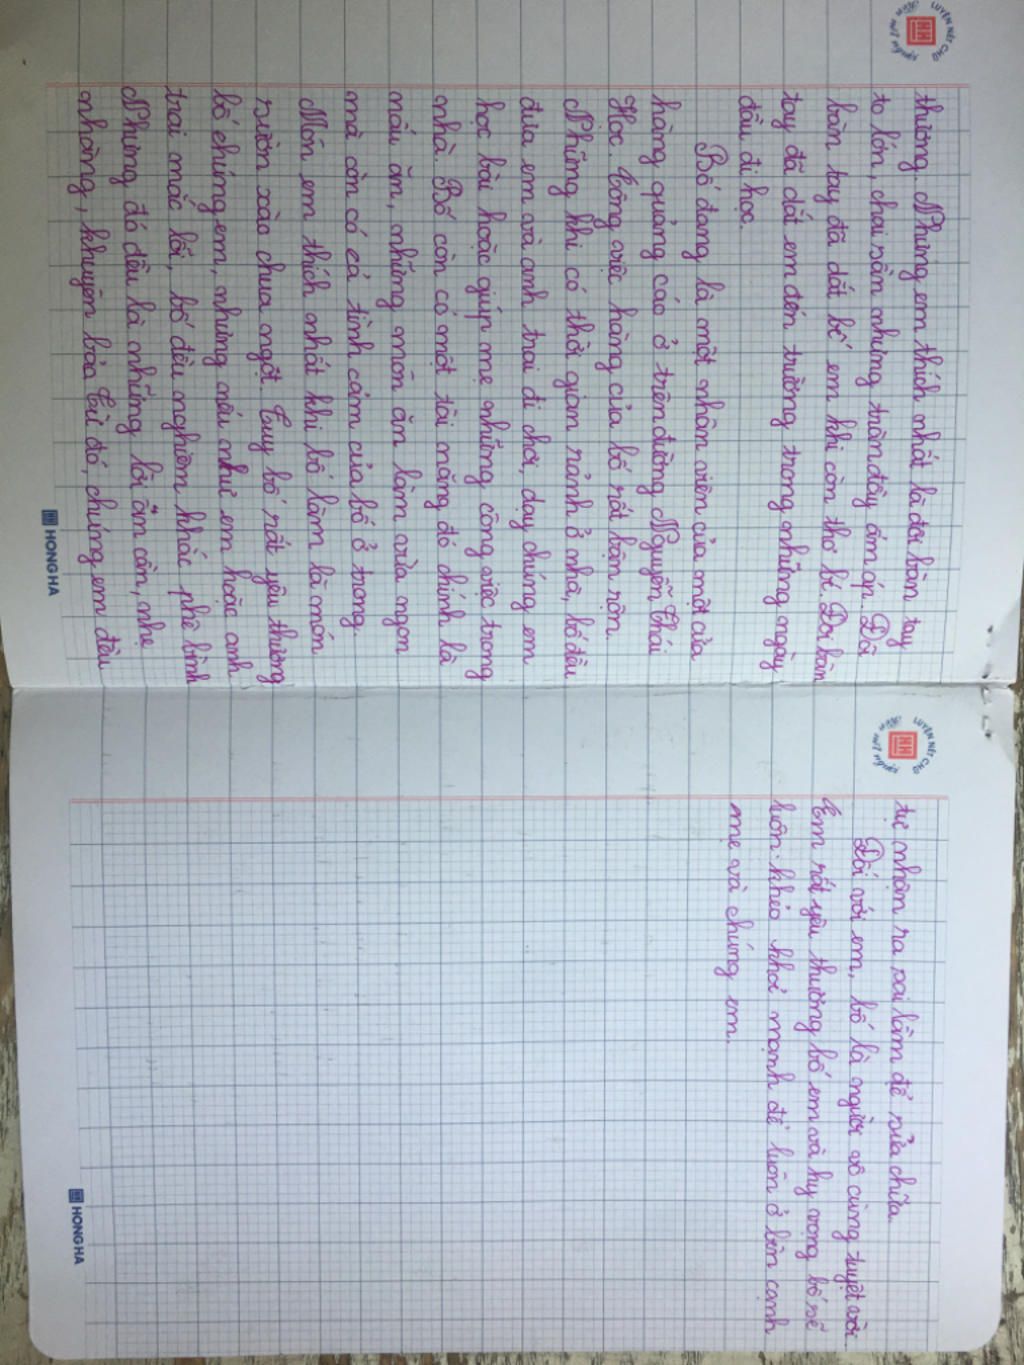 LUYỆN NÉT CHỮ
thương. Nhưng em thích nhất là đôi bàn tay
to lớn, chai sần nhưng tràn đầy ấm áp. Đôi
bàn tay đã dắt bế em khi còn thơ bé. Đôi bàn
tay đã dắt em đến trường trong những ngày
đầu đi học.
Bố đang là một nhân viên của một cửa
hàng quảng cáo ở trên đường Nguyễn Thái
Học. Công việc hàng của bố rất bận rộn.
Những khi có thời gian rảnh ở nhà, bố đều
đưa em và anh trai đi chơi, dạy chúng em
học bài hoặc giúp mẹ những công việc trong
nhà. Bố còn có một tài năng đó chính là
nấu ăn, những món ăn làm vừa ngon
mà còn có cả tình cảm của bố ở trong.
Món em thích nhất khi bố làm là món
sườn xào chua ngọt. Tuy bố rất yêu thương
bố chúng em, nhưng nếu như em hoặc anh
trai mắc lỗi, bố đều nghiêm khắc phê bình
Nhưng đó đều là những lời ôn cần, nhẹ
nhàng, khuyên bảo. Từ đó, chúng em đều
HONG HA
LUYỆN NÉT CHỮ
tự nhận ra sai lầm để sửa chữa.
Đối với em, bố là người vô cùng tuyệt vời.
Em rất yêu thương bố em và hy vọng bố sẽ
luôn khỏe khơi mạnh để luôn ở bên cạnh
mẹ và chúng em.
HONG HA